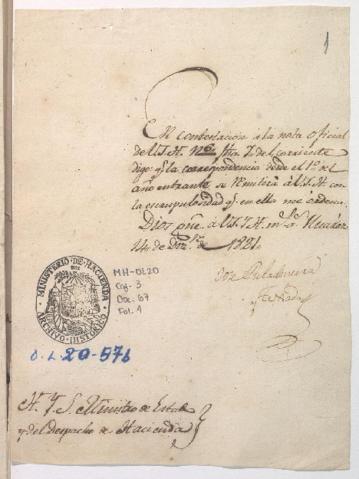 1
En contestacion á la nota Oficial
de V.S.Y. del corriente
digo q. la correspondencia desde el 1.º del
año entrante se remitirá á V.S.Y. con
la escrupulosidad q. en ella me ordena.
Dios gũe. á V.S.Y. m.s a.s
14 de 1821.
MINISTERIO DE HACIENDA
ARCHIVO HISTORICO
MH-OL20
Caj-3
Doc. 67
Fol. 1
O.L. 20-57b
Y. S. Ministro de Estado
y del Despacho de Hacienda